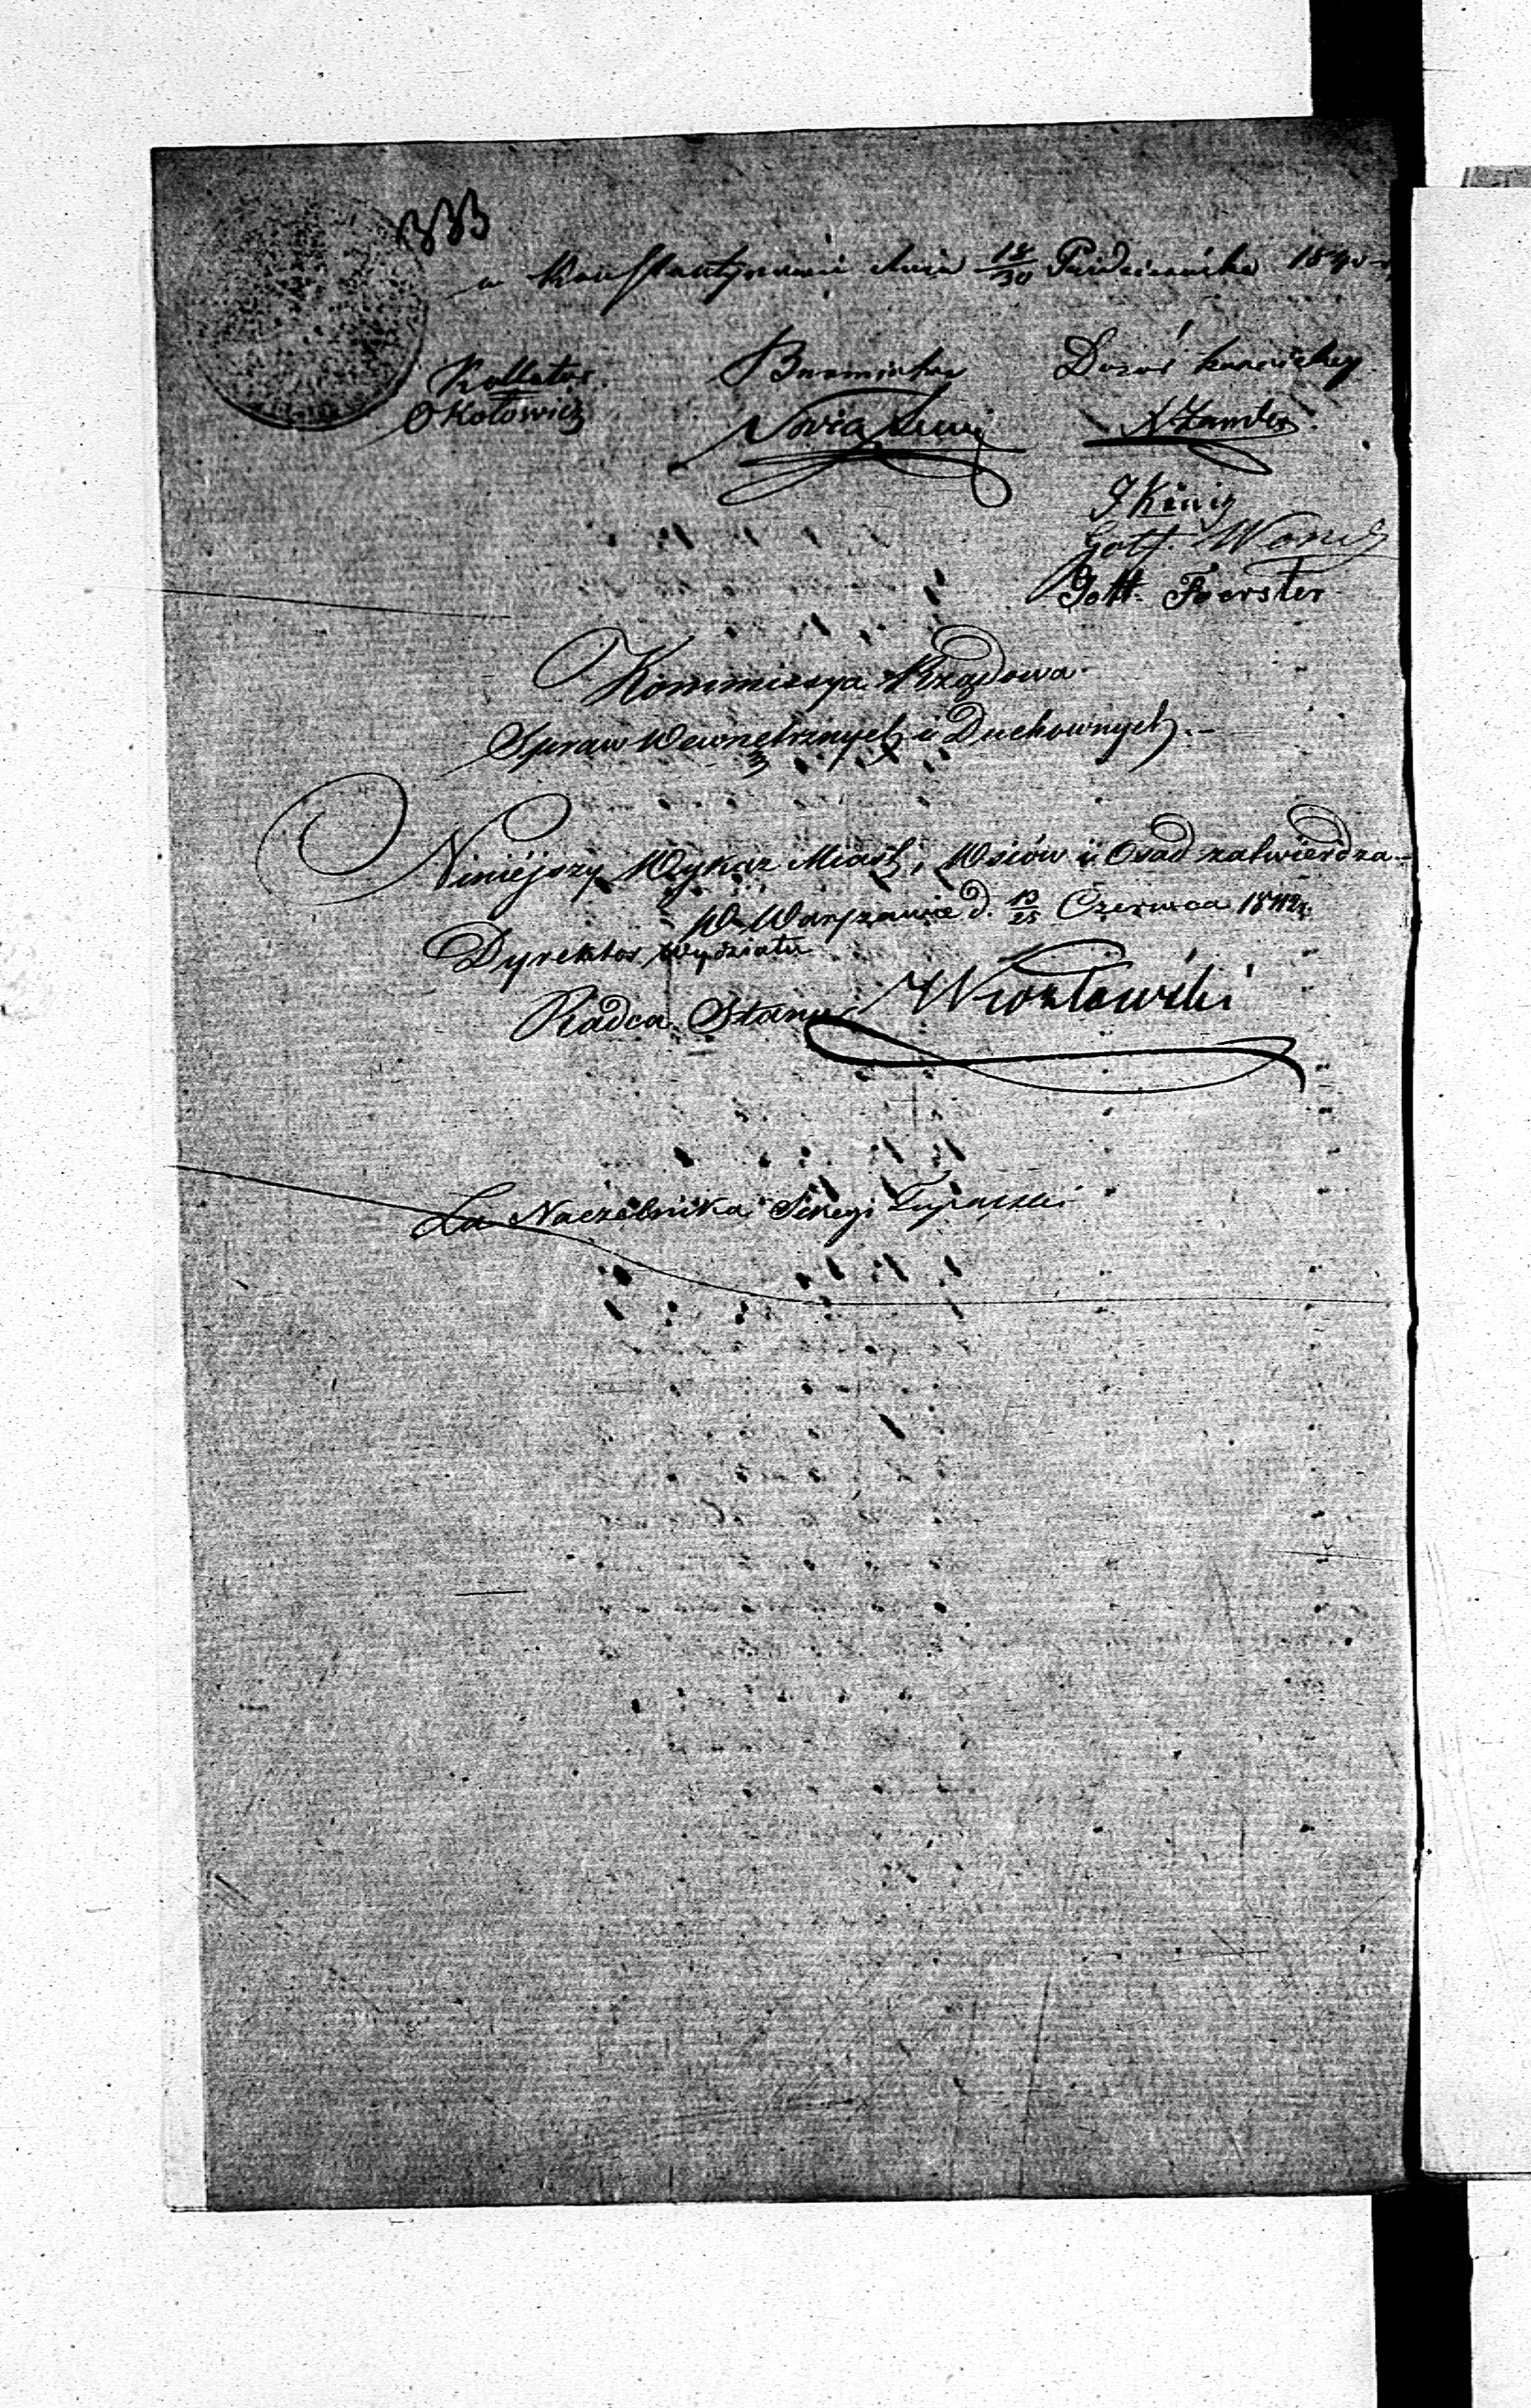 333
w Konstantynowie dnia 18/30 Października 1840
Kollator Burmistrz Dozór kościelny
Okołowicz A Zander
J König
Gott.
Gott. Foerster
Kommissya Rządowa
Spraw Wewnętrznych i Duchownych.
Niniejszy Wykaz Miast, Wsiów i Osad zatwierdza
W Warszawie d. 13/25 Czerwca 1842 r.
Dyrektor Wydziału
Radca Stanu
Za Naczelnika Sekcyi